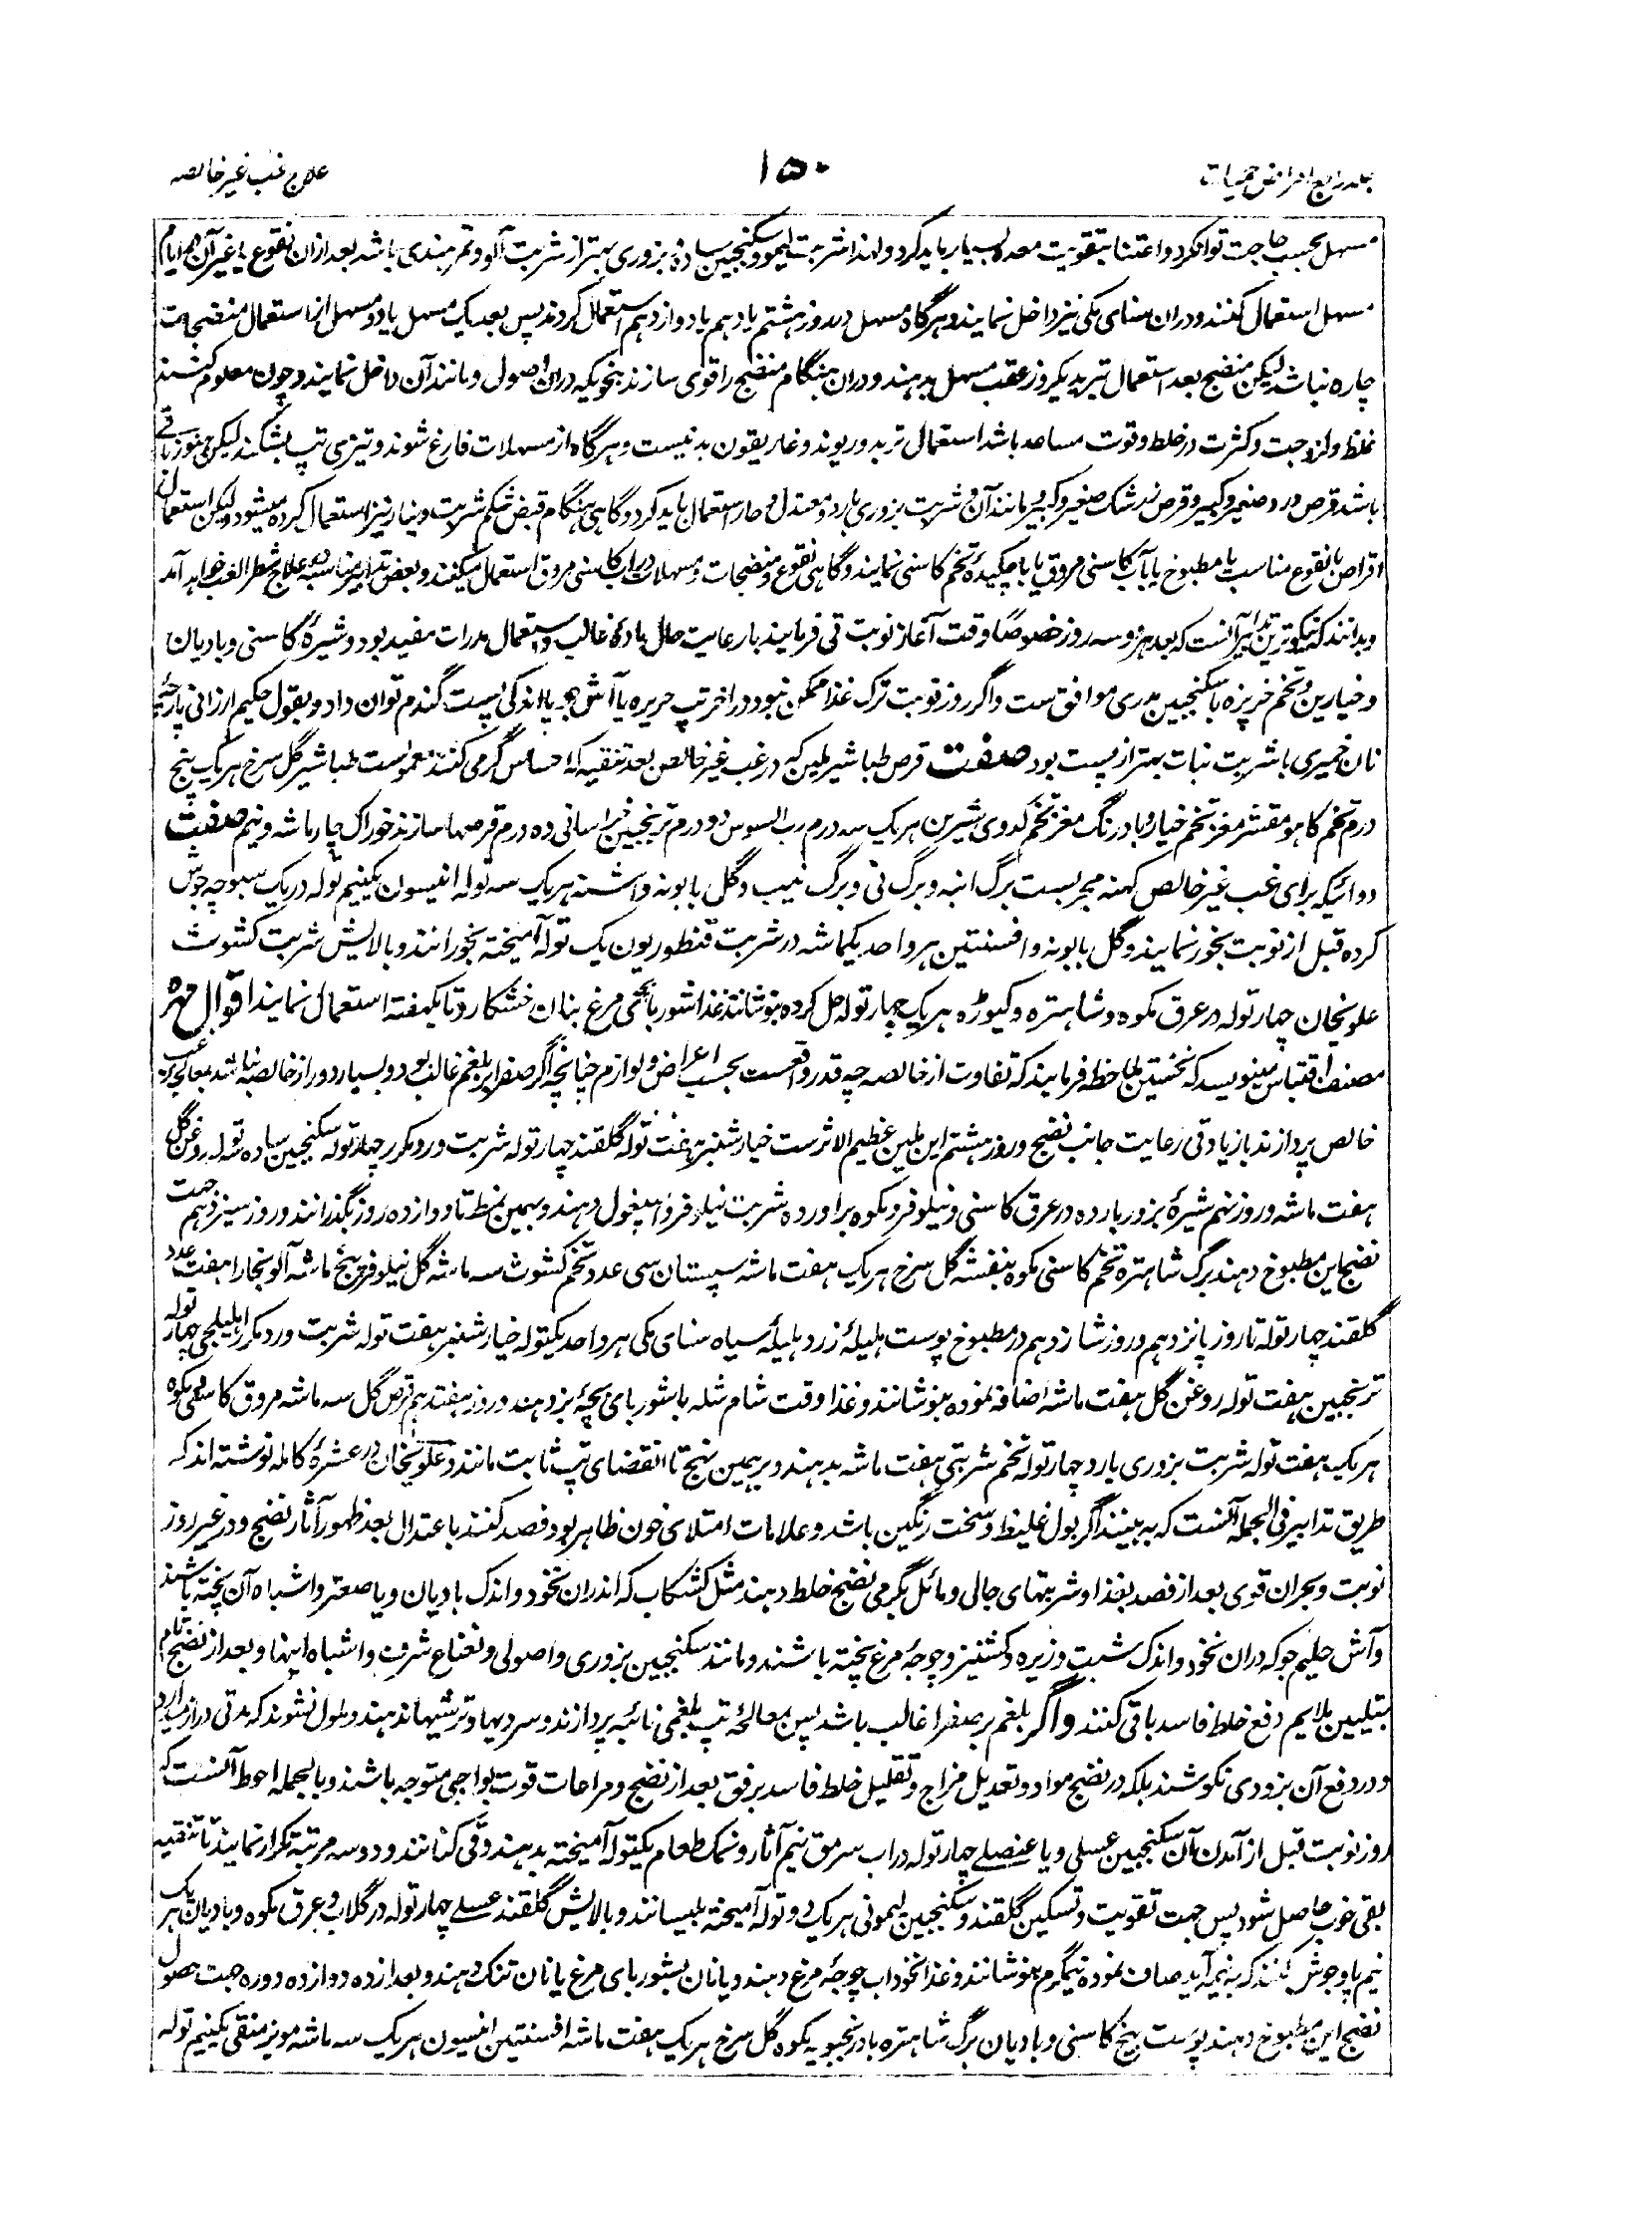 جلد رابع امراض حمیات ۱۵۰ علاج غب غیر خالصه
مسهل بحسب حاجت توانکرد و اعتنا بتقویت معده بسیار باید کرد و لهذا شربت لیمو و سکنجبین ساده و بزوری بهتر از شربت آلو و تمر هندی باشد بعد ازان نقوع یا غیر آن در ایام
مسهل استعمال کنند و دران سنای مکی نیز داخل نمایند و هرگاه مسهل در روز هشتم یا دهم یا دوازدهم استعمال کردند پس بعد یک مسهل یا دو مسهل از استعمال منضجات
چاره نباشد لیکن منضج بعد استعمال تبرید یکروز عقب مسهل بدهند و دران هنگام منضج را قوی سازند بنحویکه دران اصول و مانند آن داخل نمایند و چون معلوم کنند
غلظ و لزوجت و کثرت در خلط و قوت مساعد باشد استعمال تربد و ریوند و غاریقون بد نیست و هرگاه از مسهلات فارغ شوند و تیزی تپ بشکند لیکن هنوز باقی
باشد قرص ورد صغیر و کبیر و قرص زرشک صغیر و کبیر مانند آن و شربت بزوری بارد و معتدل و حار استعمال باید کرد و گاهی هنگام قبض شکم شربت دینار نیز استعمال کرده میشود و لیکن استعمال
اقراص با نقوع مناسب یا مطبوخ یا با آب کاسنی مروق یا با چکیده تخم کاسنی نمایند و گاهی نقوع و منضجات و مسهلات در آب کاسنی مروق استعمال میکنند و بعض تدابیر مناسبه در علاج شطر الغب خواهد آمد
و بدانند که نیکوترین تدابیر آنست که بعد هر دو سه روز خصوصا وقت آغاز نوبت قی فرمایند بارعایت حال ماده غالب و استعمال مدرات مفید بود و شیرهٔ کاسنی و بادیان
و خیارین و تخم خرپزه با سکنجبین مدری موافق ست و اگر روز نوبت ترک غذا ممکن نبود در اخر تپ حریره یا آش جو یا اندکی پست گندم توان داد و بقول حکیم ارزانی پارچهٔ
نان خمیری با شربت نبات بهتر از پست بود صفت قرص طباشیر ملین که در غب غیر خالص بعد تنقیه که احساس گرمی کنند معمولست طباشیر گل سرخ هر یک پنج
درم تخم کاهو مقشر مغز تخم خیار و بادرنگ مغز تخم کدوی شیرین هر یک سه درم رب السوس دو درم ترنجبین خراسانی ده درم قرصها سازند خوراک چار ماشه و نیم صفت
دوائیکه برای غب غیر خالص کهنه مجربست برگ انبه و برگ نی و برگ نیب و گل بابونه و اشنه هر یک سه توله انیسون یکنیم توله در یک سبوچه جوش
کرده قبل از نوبت بخور نمایند و گل بابونه و افسنتین هر واحد یکماشه در شربت قنطوریون یک توله آمیخته بخورانند و بالایش شربت کشوث
علویخان چهار توله در عرق مکوه و شاهتره و کیوڑه هر یک چهار توله حل کرده بنوشانند غذا شوربا یخنی مرغ بنان خشکار و تا یکهفته استعمال نمایند اقوال مهره
مصنف اقتباس مینویسد که نخستین ملاحظه فرمایند که تفاوت از خالصه چه قدر واقعست بحسب اعراض و لوازم چنانچه اگر صفرا بر بلغم غالب بود و بسیار دور از خالصه نباشد بمعالجه غب
خالص پردازند با زیادتی رعایت جانب نضج و روز هشتم این ملین عظیم الاثرست خیارشنبر هفت توله گلقند چهار توله شربت ورد مکرر چهار توله سکنجبین ساده توله روغن گل
هفت ماشه و روز نهم شیرهٔ بزور بارده در عرق کاسنی و نیلوفر و مکوه براورده شربت نیلوفر و اسپغول دهند و بهمین نمط تا دوازده روز بگذرانند و روز سیزدهم جهت
نضج این مطبوخ دهند برگ شاهتره تخم کاسنی مکوه بنفشه گل سرخ هر یک هفت ماشه سپستان سی عدد تخم کشوث سه ماشه گل نیلوفر پنج ماشه آلو بخارا هفت عدد
گلقند چهار توله تا روز پانزدهم و روز شانزدهم در مطبوخ پوست هلیلهٔ زرد هلیلهٔ سیاه سنای مکی هر واحد یکتوله خیارشنبر هفت توله شربت ورد مکرر اهلیلجی چهار توله
ترنجبین هفت توله روغن گل هفت ماشه اضافه نموده بنوشانند و غذا وقت شام شله با شوربای بچهٔ بز دهند و روز هفتدهم قرص گل سه ماشه مروق کاسنی مکوه
هر یک هفت توله شربت بزوری بارد چهار توله تخم شربتی هفت ماشه بدهند و بر همین نهج تا انقضای تپ ثابت مانند و علویخان در عشرهٔ کامله نوشته اند که
طریق تدابیر فی الجمله آنست که به بینند اگر بول غلیظ و سخت رنگین باشد و علامات امتلای خون ظاهر بود فصد کنند باعتدال بعد ظهور آثار نضج و در غیر روز
نوبت و بحران قوی بعد از فصد بغذا و شربتهای جالی و مائل بگرمی نضج خلط دهند مثل کشکاب که اندران نخود و اندک بادیان و یا صعتر و اشباه آن پخته باشند
و آش حلیم جو که دران نخود و اندک شبت و زیره و کشنیز و چوجهٔ مرغ پخته باشند و مانند سکنجبین بزوری و اصولی و نعناع شربت و اشباه اینها و بعد از نضج تام
بتلیین ملایم دفع خلط فاسد باقی کنند و اگر بلغم بر صفرا غالب باشد پس معالجهٔ تپ بلغمی نائبه پردازند و سردیها و ترشیها ندهند و ملول نشوند که مدتی دراز میدارد
و در دفع آن بزودی نکوشند بلکه در نضج مواد و تعدیل مزاج و تقلیل خلط فاسد برفق بعد از نضج و مراعات قوت بواجبی متوجه باشند و بالجمله احوط آنست که
روز نوبت قبل از آمدن آن سکنجبین عسلی و یا عنصلی چهار توله در اب سرمق نیم آثار و نمک طعام یکتوله آمیخته بدهند و قی کنانند و دو سه مرتبه تکرار نمایند تا تنقیه
بقی خوب حاصل شود پس جهت تقویت و تسکین گلقند و سکنجبین لیمونی هر یک دو توله آمیخته بلیسانند و بالایش گلقند عسلی چهار توله در گلاب و عرق مکوه و بادیان هر یک
نیم پاو جوش کنند که به نیمه آید صاف نموده نیمگرم بنوشانند و غذا نخوداب چوجهٔ مرغ دهند و یا نان بشوربای مرغ یا نان تنک دهند و بعد از ده دوازده دوره جهت حصول
نضج این مطبوخ دهند پوست بیخ کاسنی و بادیان برگ شاهتره بادرنجبویه مکوه گل سرخ هر یک هفت ماشه افسنتین انیسون هر یک سه ماشه مویز منقی یکنیم توله